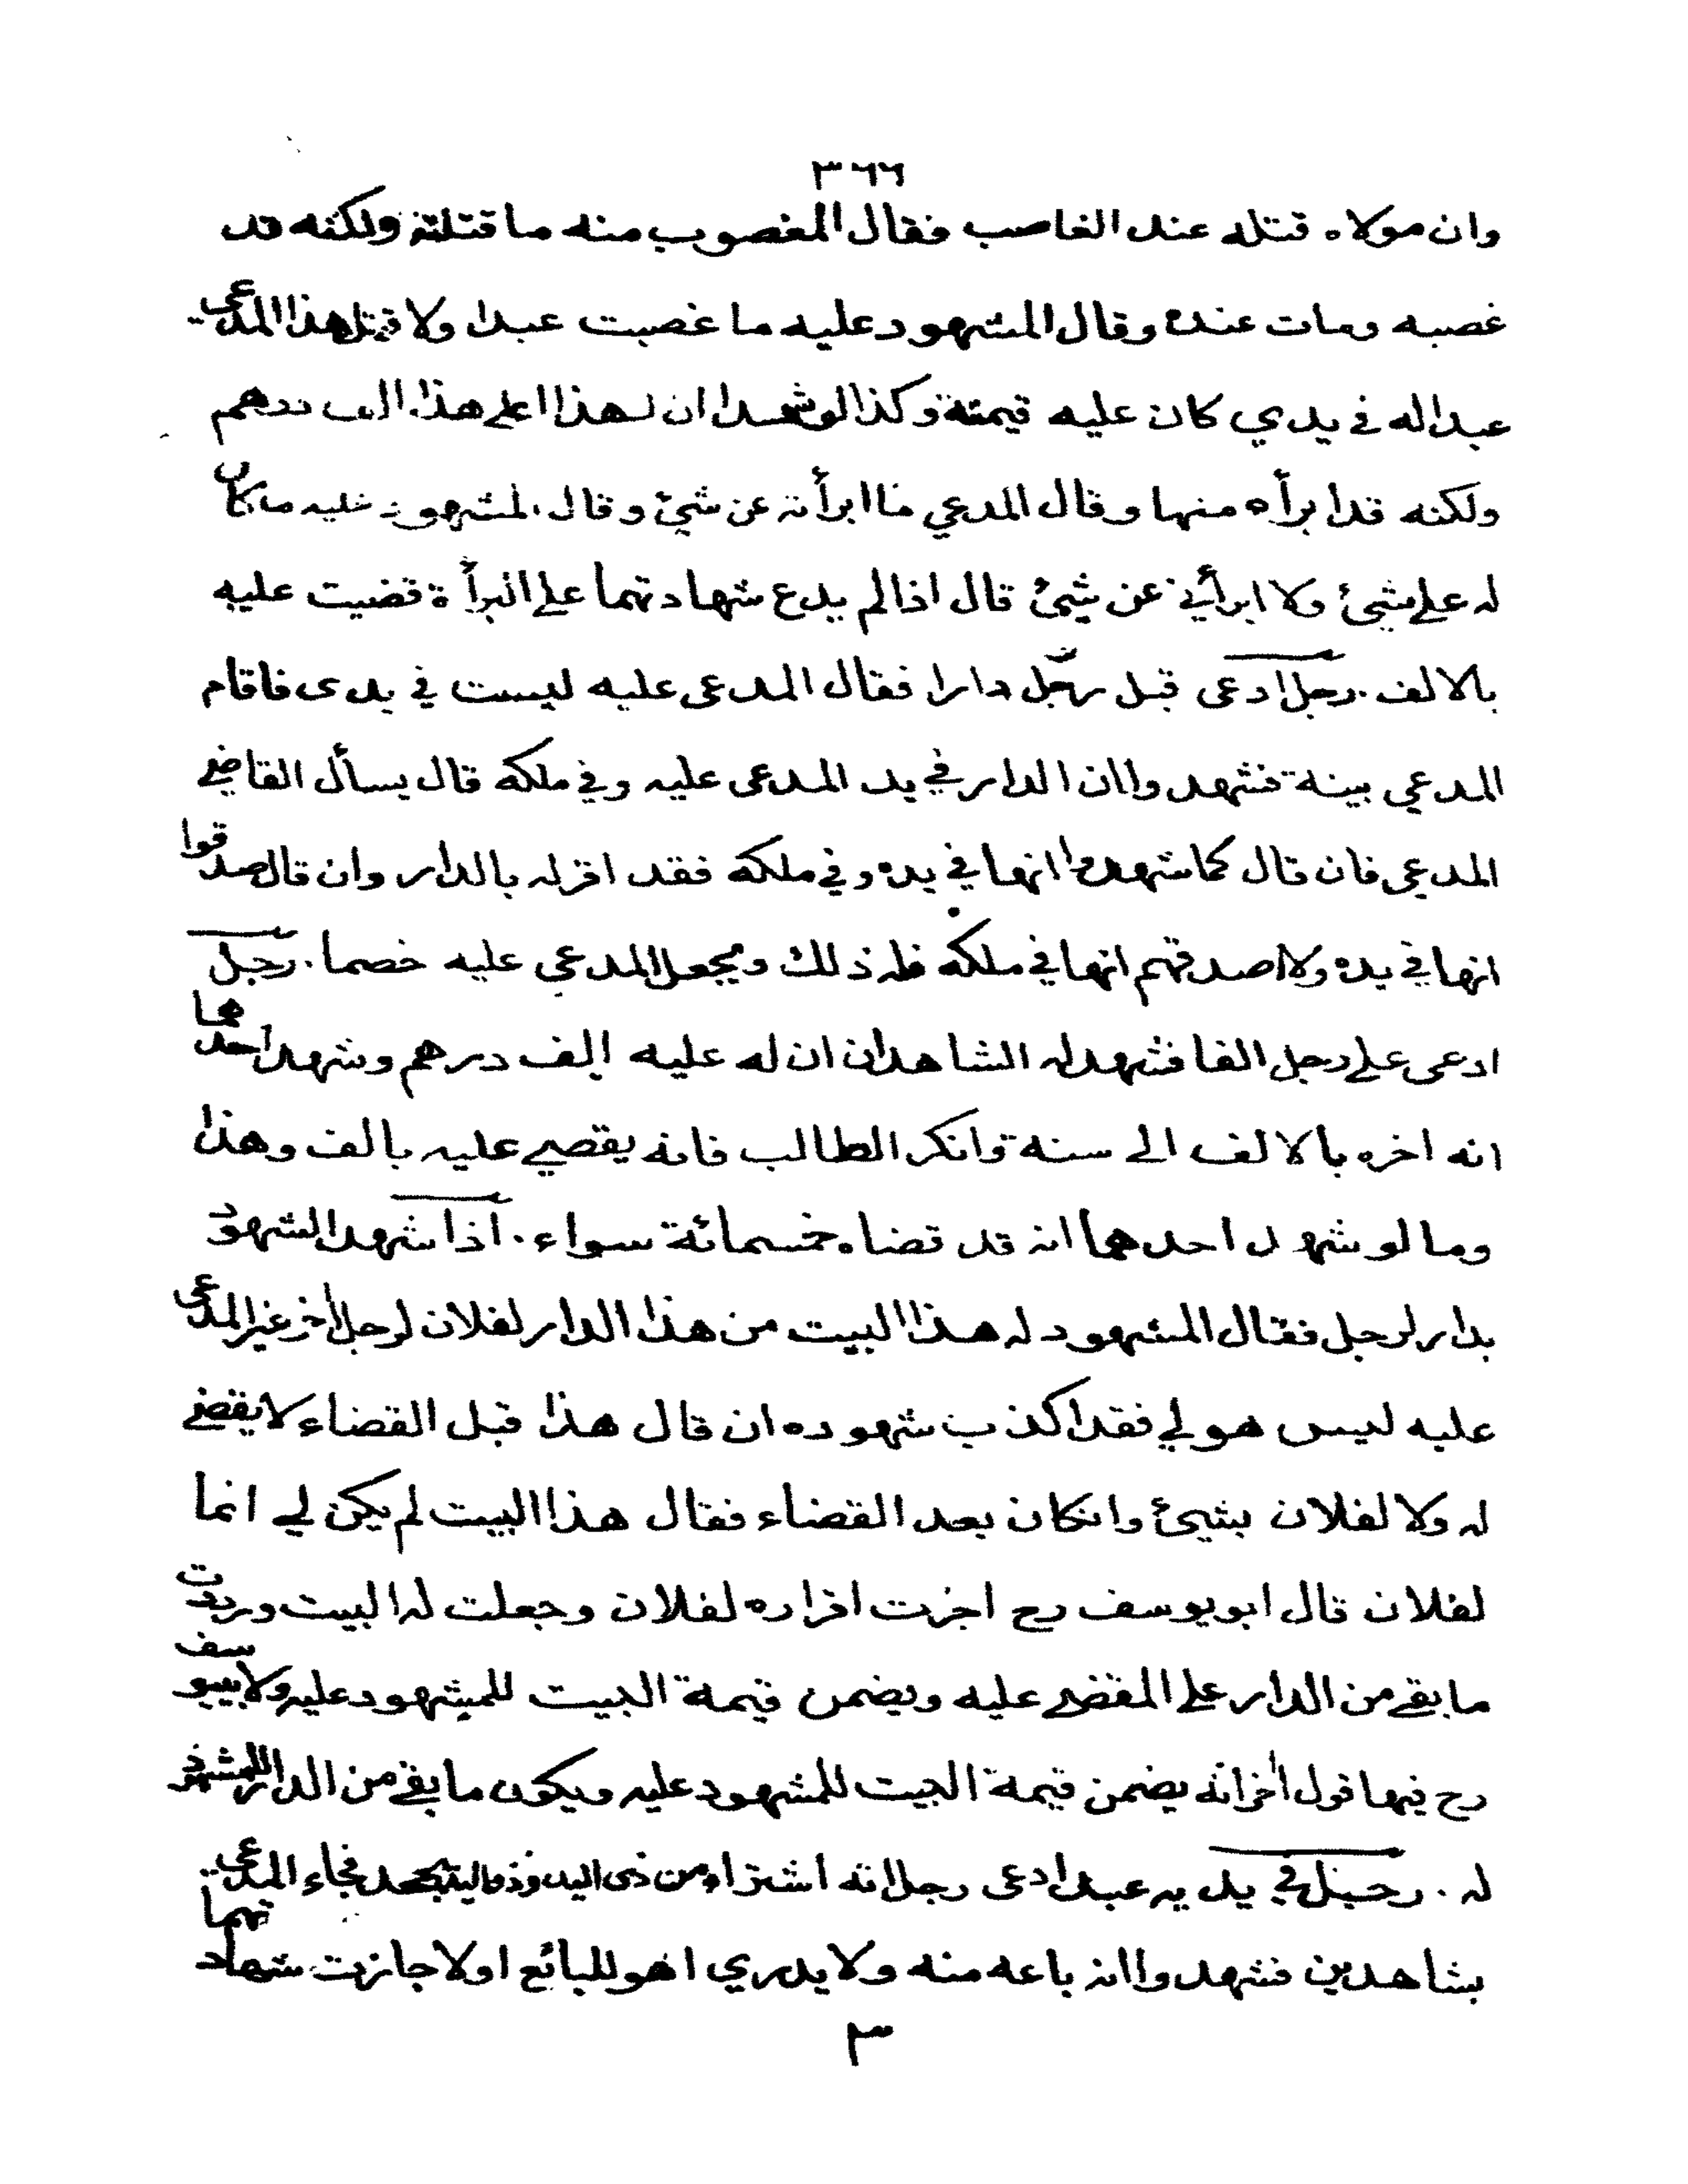 ٣٦٦
وان مولاه قتله عند الغاصب فقال المغصوب منه ما قتلته ولكنه قد
غصبه ومات عنده وقال المشهود عليه ما غصبت عبدا ولا قتل هذا المدعى
عبدا له في يدي كان عليه قيمته وكذا لو شهدا ان لهذا على هذا الف درهم
ولكنه قد ابرأه منها وقال المدعي ما ابرأته عن شيئ وقال المشهود عليه ما كان
له علي شيئ ولا ابرأني عن شيئ قال اذا لم يدع شهادتهما على البرأة قضيت عليه
بالالف. رجل ادعى قبل رجل دارا فقال المدعى عليه ليست في يدى فاقام
المدعي بينة فشهدوا ان الدار في يد المدعى عليه وفي ملكه قال يسأل القاضي
المدعي فان قال كما شهدوا انها في يده وفي ملكه فقد اقر له بالدار وان قال صدقوا
انها في يده ولا اصدقهم انها في ملكه فله ذلك ويجعل المدعي عليه خصما. رجل
ادعى على رجل الفا فشهد له الشاهدان ان له عليه الف درهم وشهد احدهما
انه اخره بالالف الى سنة وانكر الطالب فانه يقضي عليه بالف وهذا
وما لو شهد احدهما انه قد قضاه خمسمائة سواء. اذا شهد الشهود
بدار لرجل فقال المشهود له هذا البيت من هذا الدار لفلان لرجل اخر غير المدعى
عليه ليس هو لي فقد اكذب شهوده ان قال هذا قبل القضاء لا يقضي
له ولا لفلان بشيئ وانكان بعد القضاء فقال هذا البيت لم يكن لي انما
لفلان قال ابو يوسف رح اجزت اقراره لفلان وجعلت له البيت ورددت
ما بقي من الدار على المقضي عليه ويضمن قيمة البيت للمشهود عليه ولابي يوسف
رح فيها قول اخر انه يضمن قيمة البيت للمشهود عليه ويكون ما بقي من الدار للمشهود
له. رجل في يديه عبد ادعى رجل انه اشتراه من ذى اليد وذو اليد يجحد فجاء المدعى
بشاهدين فشهدوا انه باعه منه ولا يدري اهو للبائع اولا جازت شهادتهما
٣